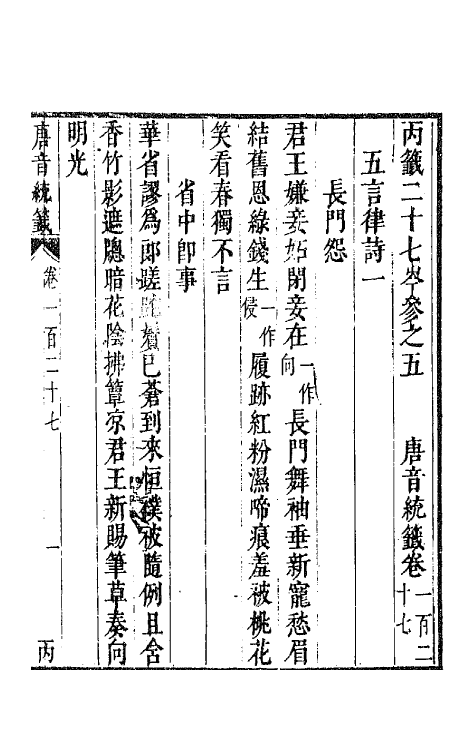 丙籖二十七岑參之五　唐音統籖卷一百二十七
五言律詩一
長門怨
君王嫌妾妬閉妾在一作向長門舞袖垂新寵愁眉
結舊恩綠錢生一作侵履跡紅粉濕啼痕羞被桃花
笑看春獨不言
省中卽事
華省謬爲郎蹉跎鬢已蒼到來恒襆被隨例且含
香竹影遮牕暗花陰拂簟凉君王新賜筆草奏向
明光
唐音統籖　卷一百二十七　一　丙